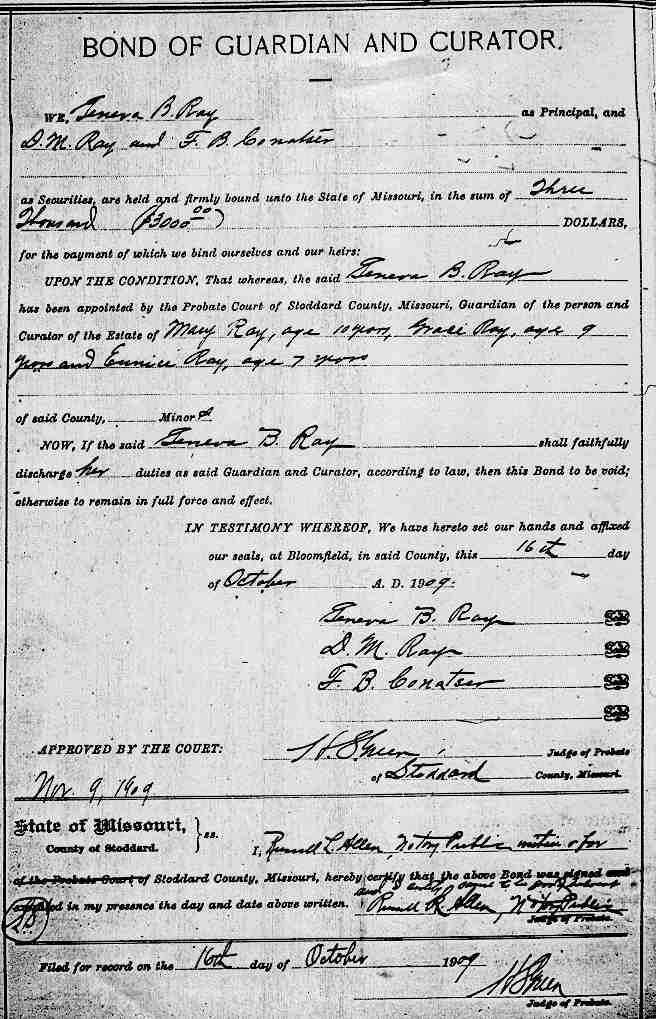 BOND OF GUARDIAN AND CURATOR.
WE, Teneva B. Ray as Principal, and
D. M. Ray and F. B. Conatser
as Securities, are held and firmly bound unto the State of Missouri, in the sum of Three
Thousand ($3000.00) DOLLARS,
for the payment of which we bind ourselves and our heirs:
UPON THE CONDITION, That whereas, the said Teneva B. Ray
has been appointed by the Probate Court of Stoddard County, Missouri, Guardian of the person and
Curator of the Estate of Mary Ray, age 10 years, Gracie Ray, age 9
years and Eunice Ray, age 7 years
of said County, Minors.
NOW, If the said Teneva B. Ray shall faithfully
discharge her duties as said Guardian and Curator, according to law, then this Bond to be void;
otherwise to remain in full force and effect.
IN TESTIMONY WHEREOF, We have hereto set our hands and affixed
our seals, at Bloomfield, in said County, this 16th day
of October A. D. 1909.
Teneva B. Ray
D. M. Ray
F. B. Conatser
APPROVED BY THE COURT: Judge of Probate
Nov. 9, 1909 of Stoddard County, Missouri.
State of Missouri, ss.
County of Stoddard. I, Russell L. Allen, Notary Public within & for
of the Probate Court of Stoddard County, Missouri, hereby certify that the above Bond was signed and
in my presence the day and date above written. Russell L. Allen, Notary Public
Judge of Probate.
Filed for record on the 16th day of October 1909
Judge of Probate.